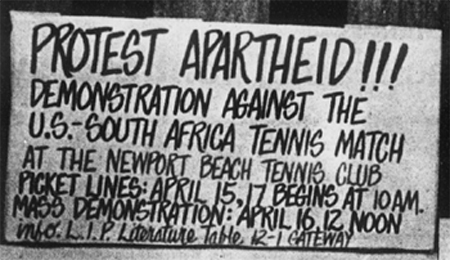 PROTEST APARTHEID!!!
DEMONSTRATION AGAINST THE
U.S.-SOUTH AFRICA TENNIS MATCH
AT THE NEWPORT BEACH TENNIS CLUB
PICKET LINES: APRIL 15, 17 BEGINS AT 10 AM.
MASS DEMONSTRATION: APRIL 16, 12 NOON
info: L.I.P. Literature Table, 12-1 GATEWAY